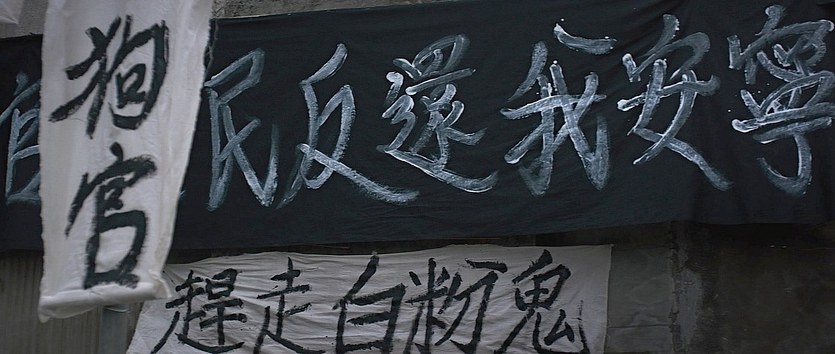 狗官
民反還我安寧
趕走白粉鬼